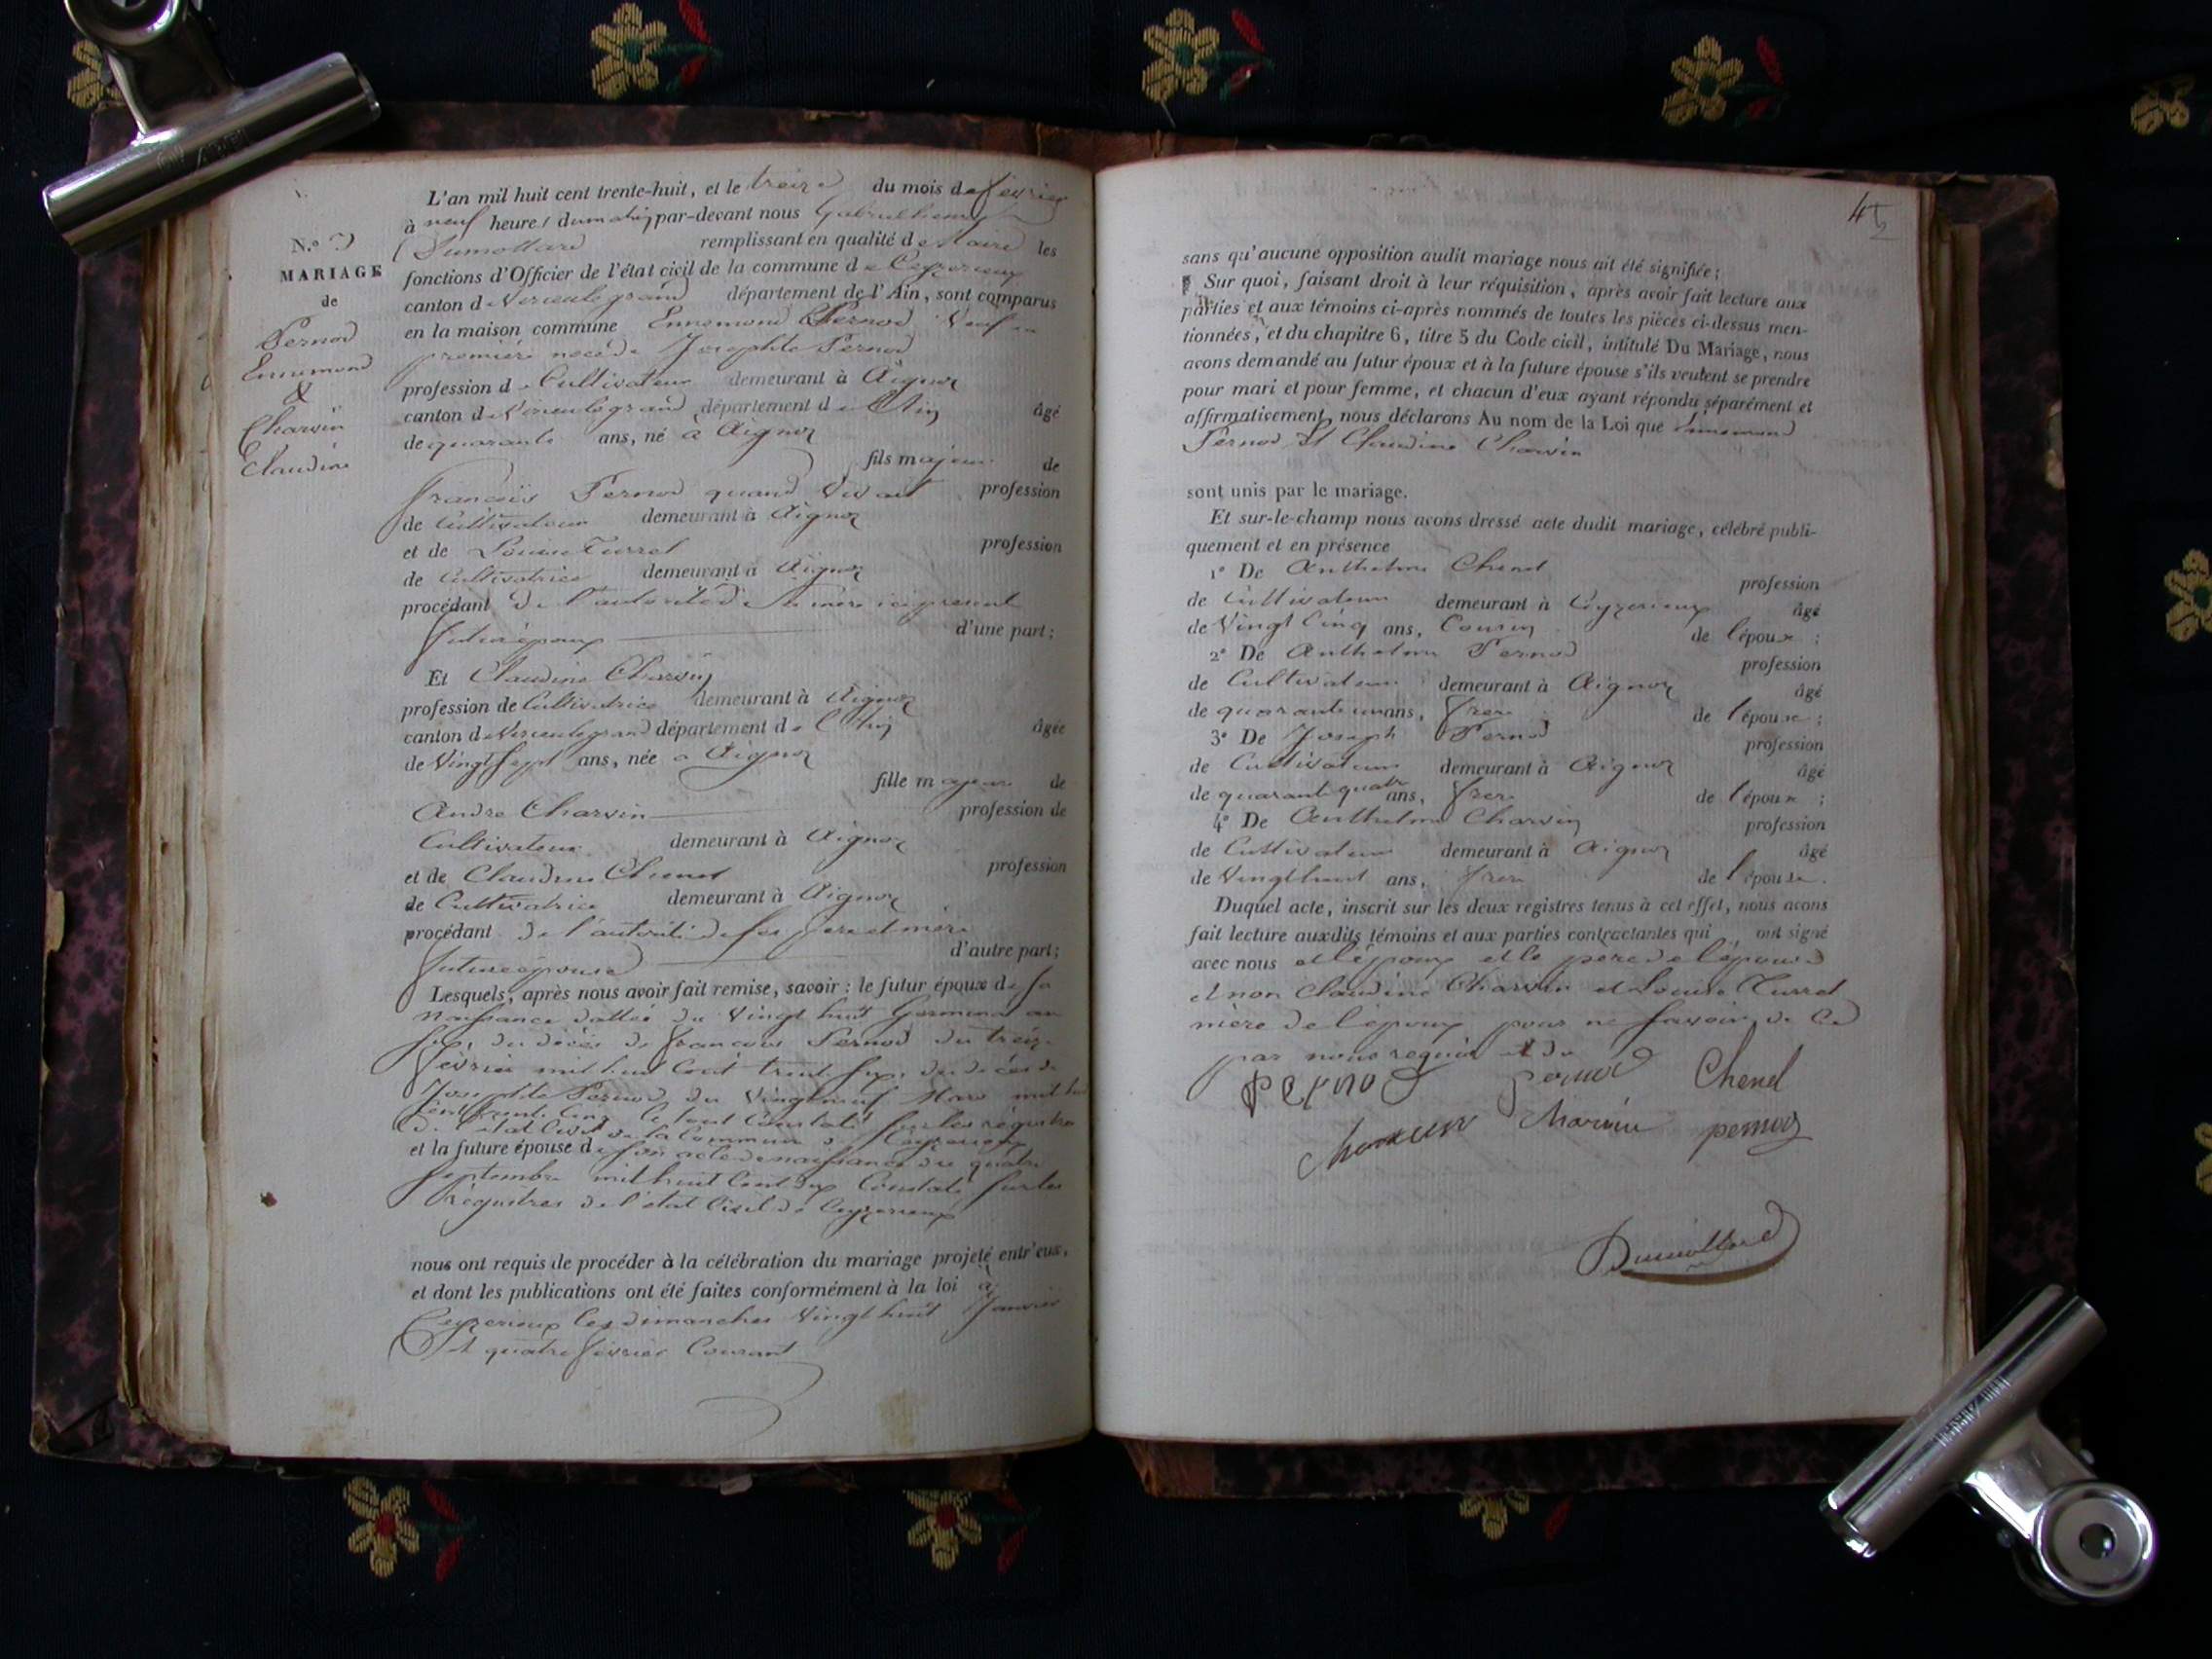 L'an mil huit cent trente-huit, et le treize du mois de février
à neuf heures du matin par-devant nous
Dumollard remplissant en qualité de Maire les
fonctions d'Officier de l'état civil de la commune de Ceyzerieux
canton de Virieulegrand département de l'Ain, sont comparus
en la maison commune Ennemond Pernod Veuf en
première noce de Josephte Pernod
profession de Cultivateur demeurant à Aignoz
canton de Virieulegrand département de l'Ain âgé
de quarante ans, né à Aignoz
fils majeur de
François Pernod quand vivait profession
de Cultivateur demeurant à Aignoz
et de Louise Turrel profession
de Cultivatrice demeurant à Aignoz
procédant de l'autorité de sa mère ici présent
futur époux d'une part;
N.o 3
MARIAGE
de
Pernod
Ennemond
&
Charvin
Claudine
Et Claudine Charvin
profession de Cultivatrice demeurant à Aignoz
canton de Virieulegrand département de l'Ain âgée
de Vingt sept ans, née à Aignoz
fille majeure de
Andre Charvin profession de
Cultivateur demeurant à Aignoz
et de Claudine Chenet profession
de Cultivatrice demeurant à Aignoz
procédant de l'autorité de ses père et mère
future épouse d'autre part;
Lesquels, après nous avoir fait remise, savoir : le futur époux de sa
naissance dattée du Vingt huit Germinal an
six, du décès de François Pernod du treize
février mil huit Cent trente six, du décès de
Josephte Pernod du Vingt neuf Mars mil huit
Cent trente Cinq le tout Constaté sur les régistres
de l'état Civil de la Commune de Ceyzerieux
et la future épouse de son acte de naissance du quatre
septembre mil huit Cent dix Constaté sur les
régistres de l'état Civil de Ceyzerieux
nous ont requis de procéder à la célébration du mariage projeté entr'eux,
et dont les publications ont été faites conformément à la loi à
Ceyzerieux les dimanches Vingt huit Janvier
Et quatre février Courant
sans qu'aucune opposition audit mariage nous ait été signifiée;
Sur quoi, faisant droit à leur réquisition, après avoir fait lecture aux
parties et aux témoins ci-après nommés de toutes les pièces ci-dessus men-
tionnées, et du chapitre 6, titre 5 du Code civil, intitulé Du Mariage, nous
avons demandé au futur époux et à la future épouse s'ils veulent se prendre
pour mari et pour femme, et chacun d'eux ayant répondu séparément et
affirmativement, nous déclarons Au nom de la Loi que Ennemond
Pernod Et Claudine Charvin
sont unis par le mariage.
Et sur-le-champ nous avons dressé acte dudit mariage, célébré publi-
quement et en présence
1° De Anthelme Chenet
profession
de Cultivateur demeurant à Ceyzerieux âgé
de Vingt Cinq ans, Cousin de l'époux ;
2° De Anthelme Pernod profession
de Cultivateur demeurant à Aignoz âgé
de quarante un ans, frere de l'épouse ;
3° De Joseph Pernod profession
de Cultivateur demeurant à Aignoz âgé
de quarante quatre ans, frere de l'époux ;
4° De Anthelme Charvin profession
de Cultivateur demeurant à Aignoz âgé
de Vingt huit ans, frere de l'épouse.
Duquel acte, inscrit sur les deux registres tenus à cet effet, nous avons
fait lecture auxdits témoins et aux parties contractantes qui ont signé
avec nous et l'époux et le pere de l'épouse
et non Claudine Charvin et Louise Turrel
mère de l'époux pour ne savoir de Ce
par nous requis
Pernod Pernod Chenet
Charvin pernoz
Dumollard